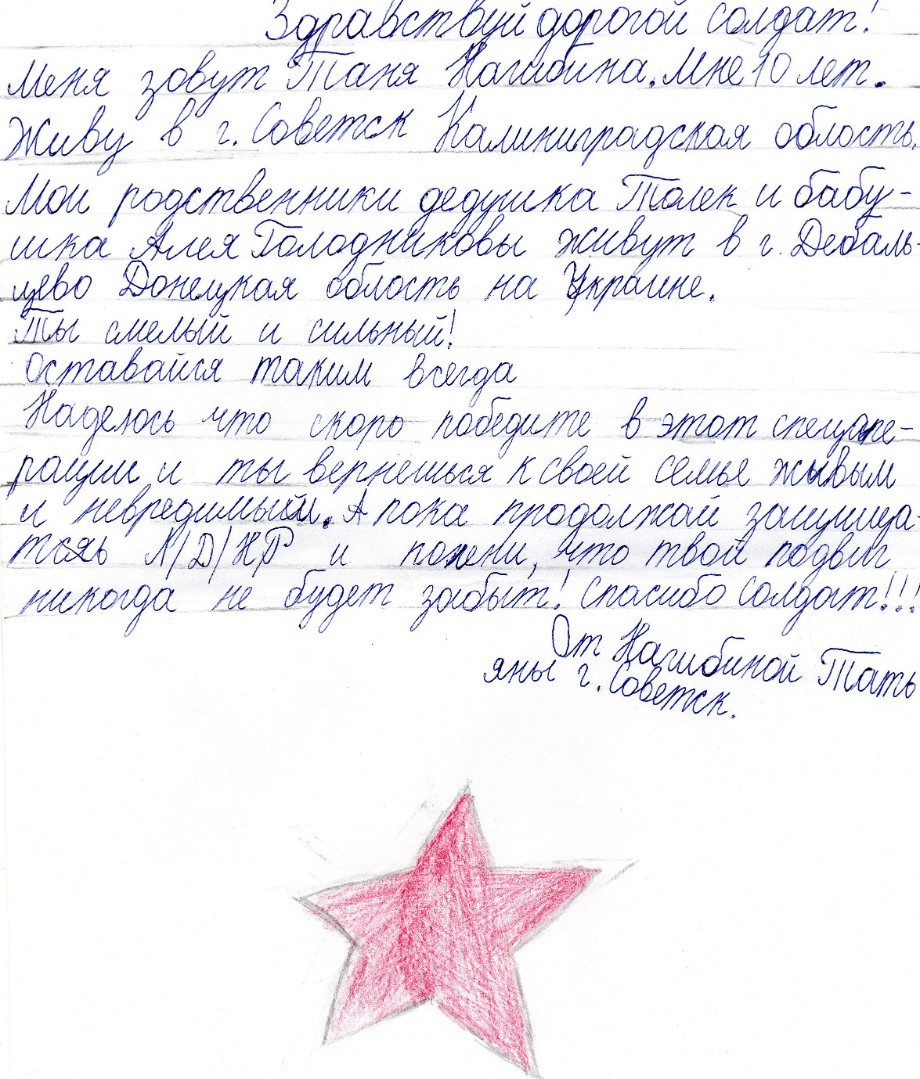 Здравствуй дорогой солдат!
Меня зовут Таня Нагибина. Мне 10 лет.
Живу в г. Советск Калининградская область.
Мои родственники дедушка Толек и бабу-
шка Алея Голодниковы живут в г. Дебаль-
цево Донецкая область на Украине.
Ты смелый и сильный!
Оставайся таким всегда
Надеюсь что скоро победите в этот спецопе-
рации и ты вернешься к своей семье живым
и невредимый. А пока продолжай защища-
ть Л/Д/НР и помни, что твой подвиг
никогда не будет забыт! Спасибо Солдат!!!
От Нагибиной Тать
яны г. Советск.